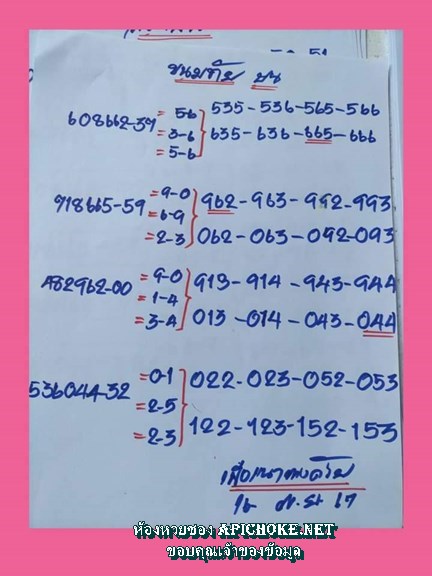 ขนมถ้วย บน
608662-39 = 5-6 535-536-565-566
= 3-6 635-636-665-666
= 5-6
918665-59 = 9-0 962-963-992-993
= 6-9 062-063-092-093
= 2-3
482962-00 = 9-0 913-914-943-944
= 1-4 013-014-043-044
= 3-4
536044-32 = 0-1 022-023-052-053
= 2-5 122-123-152-153
= 2-3
16 67
ห้องหวยซอง APICHOKE.NET
ขอบคุณเจ้าของข้อมูล